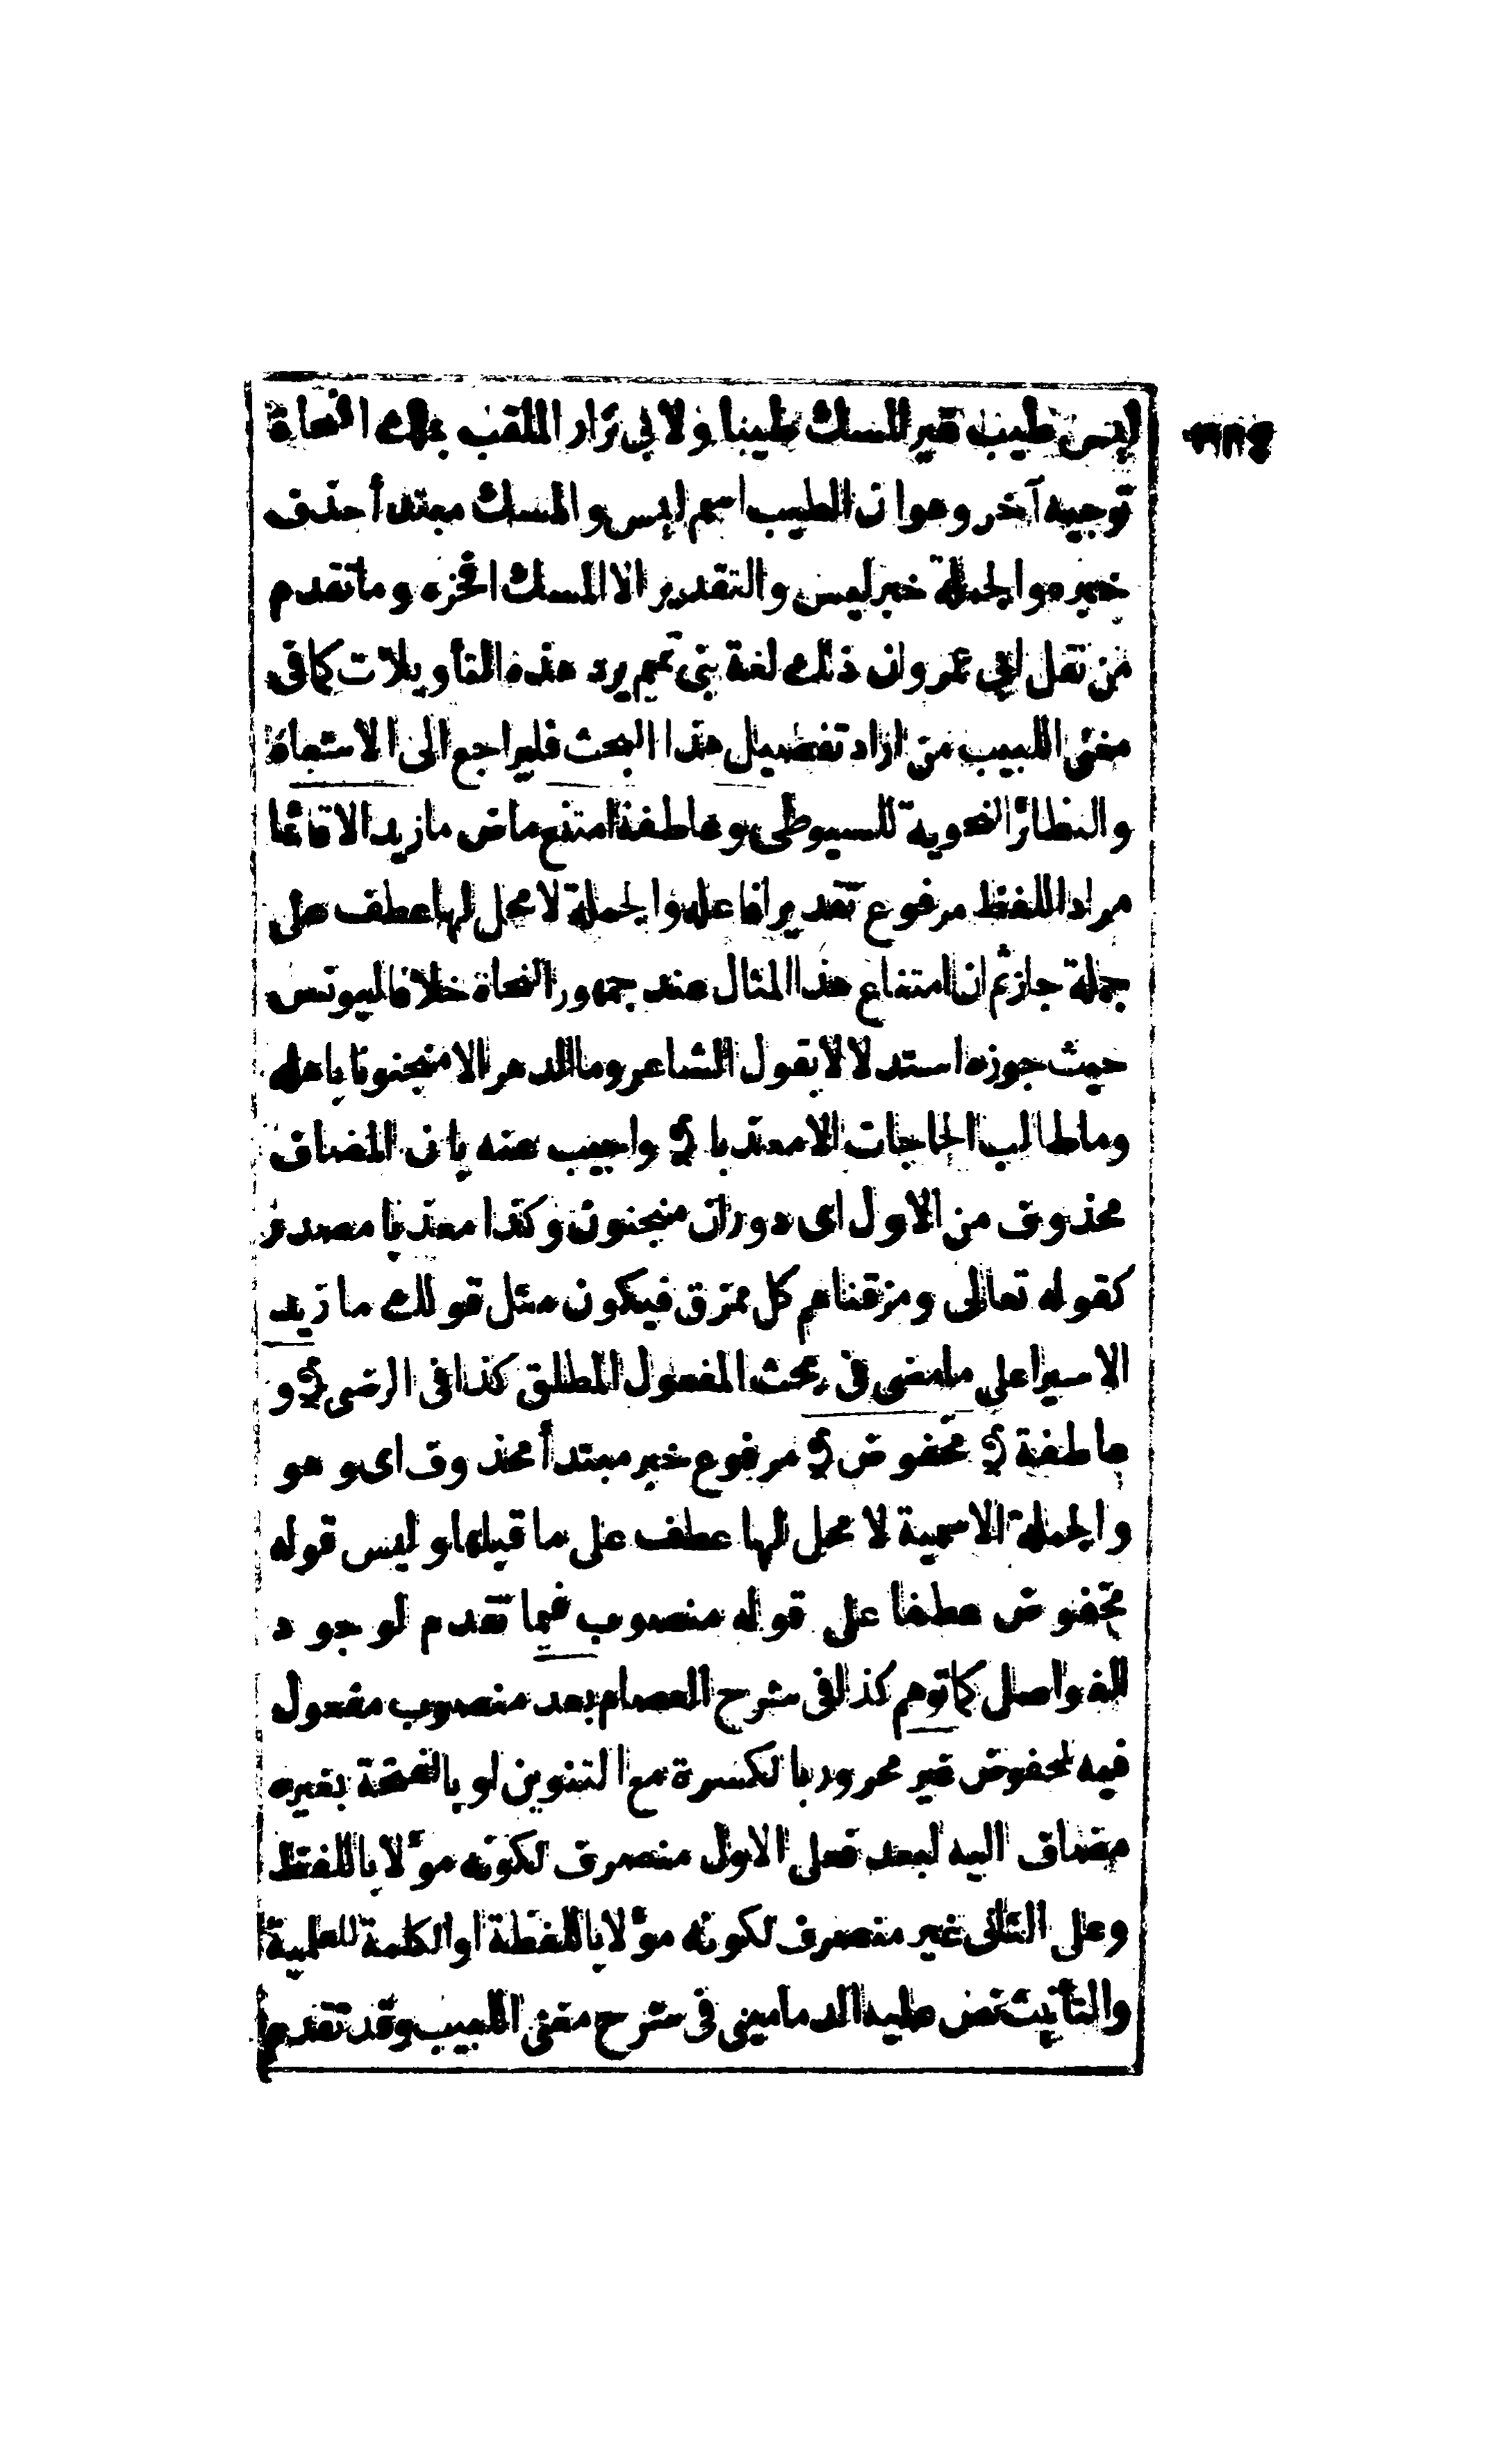 ليس طيب غير المسك طيبا ولابى نزار الملقب بملك النحاة
توجيه آخر وهوان الطيب اسم ليس والمسك مبتدأ حذف
خبره والجملة خبر ليس والتقدير الا المسك افخره وما تقدم
من نقل ابى عمر وان ذلك لغة بنى تميم يرد هذه التأويلات كما فى
مغنى اللبيب من اراد تفصيل هذا البحث فليراجع الى الاشباه
والنظائر النحوية للسيوطى و عاطفة امتنع ماض ما زيد الا قائما
مراد اللفظ مرفوع تقديرا فاعله والجملة لا محل لها عطف على
جملة جاز ثم ان امتناع هذا المثال عند جمهور النحاة خلافا ليونس
حيث جوزه استدلالا بقول الشاعر وما الدهر الا منجنونا باهله
وما طالب الحاجات الا معذبا واجيب عنه بان المضاف
محذوف من الاول اى دوران منجنون وكذا معذبا مصدر
كقوله تعالى ومزقناهم كل ممزق فيكون مثل قولك ما زيد
الا سيرا على ما مضى فى بحث المفعول المطلق كذا فى الرضى و
عاطفة مخفوض مرفوع خبر مبتدأ محذوف اى وهو
والجملة الاسمية لا محل لها عطف على ما قبلها وليس قوله
مخفوض عطفا على قوله منصوب فيما تقدم لوجود
الفواصل كما توهم كذا فى شرح العصام بعد منصوب مفعول
فيه لمخفوض غير مجرور بالكسرة مع التنوين او بالفتحة بغيره
مضاف اليه لبعد فعلى الاول منصرف لكونه مؤلا باللفظ
وعلى الثانى غير منصرف لكونه مؤلا باللفظة او الكلمة للعلمية
والتأنيث نص عليه الدمامينى فى شرح مغنى اللبيب وقد تقدم